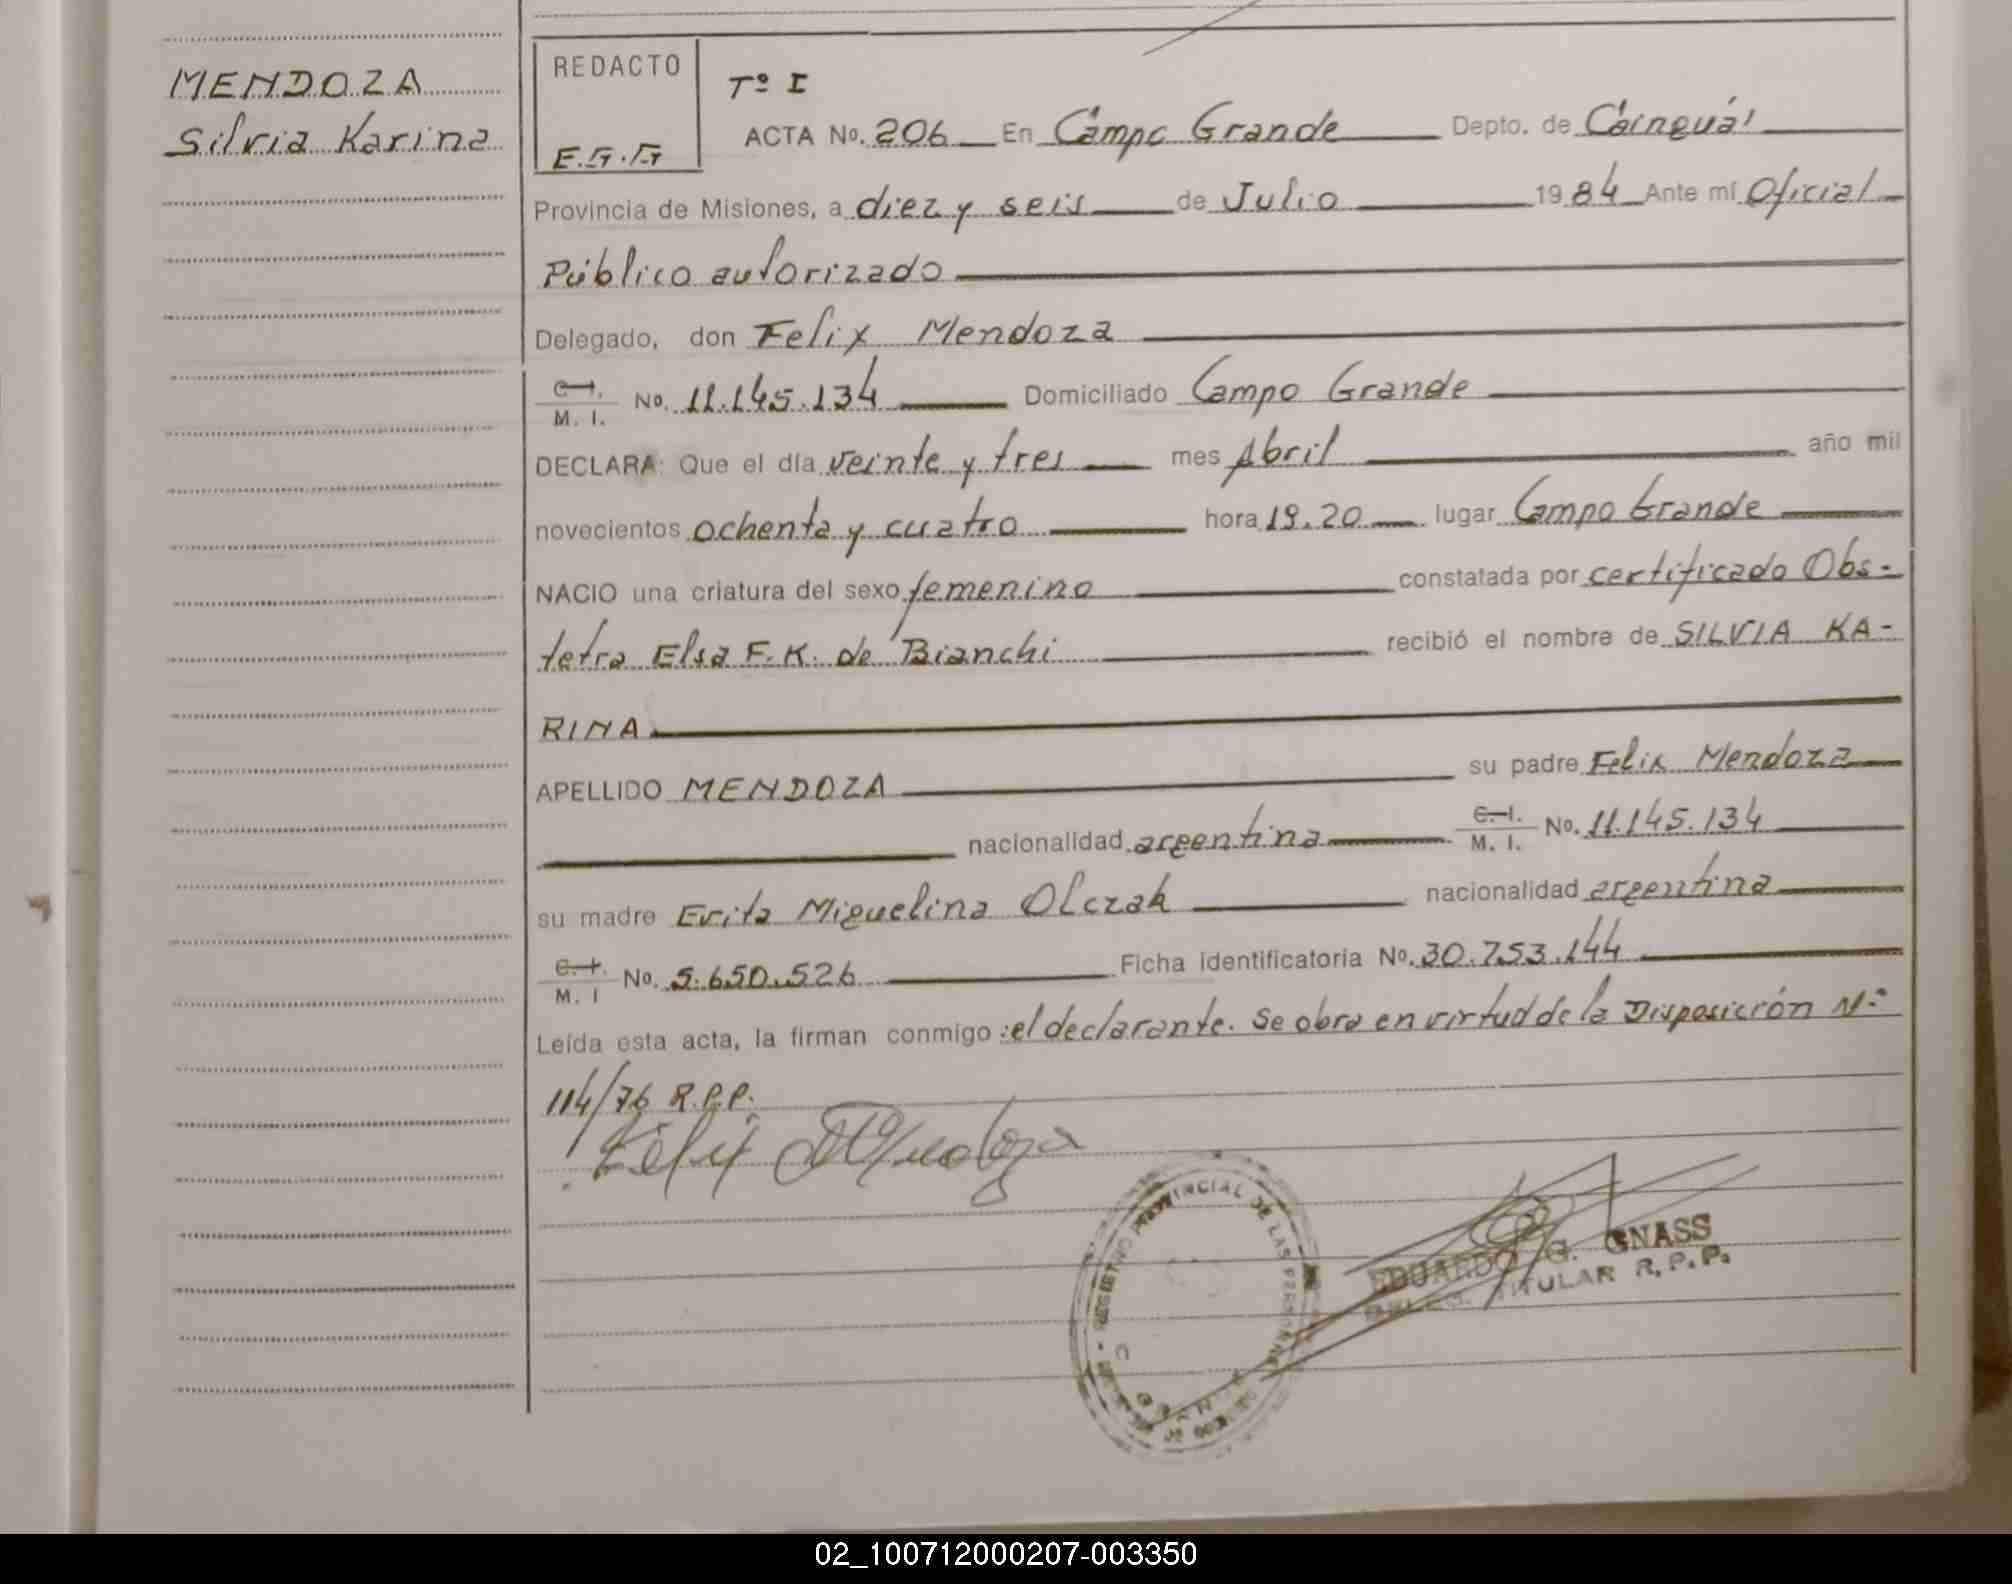 MENDOZA
Silvia Karina
REDACTO
E.G.G
Tº I
ACTA No. 206 En Campo Grande Depto. de Cainguás
Provincia de Misiones, a diez y seis de Julio 1984 Ante mí Oficial
Público autorizado
Delegado, don Felix Mendoza
C. I. / M. I. No. 11.145.134 Domiciliado Campo Grande
DECLARA: Que el día veinte y tres mes Abril año mil
novecientos ochenta y cuatro hora 19.20 lugar Campo Grande
NACIO una criatura del sexo femenino constatada por certificado Obs-
tetra Elsa F. K. de Bianchi recibió el nombre de SILVIA KA-
RINA
APELLIDO MENDOZA su padre Felix Mendoza
nacionalidad argentina C. I. / M. I. No. 11.145.134
su madre Evita Miguelina Olczak nacionalidad argentina
C. I. / M. I No. 5.650.526 Ficha identificatoria No. 30.753.144
Leída esta acta, la firman conmigo : el declarante. Se obra en virtud de la Disposición Nº
114/76 R.P.P.
Felix Mendoza
REGISTRO PROVINCIAL DE LAS PERSONAS
EDUARDO G. GNASS
DELEG. TITULAR R.P.P.
02_100712000207-003350